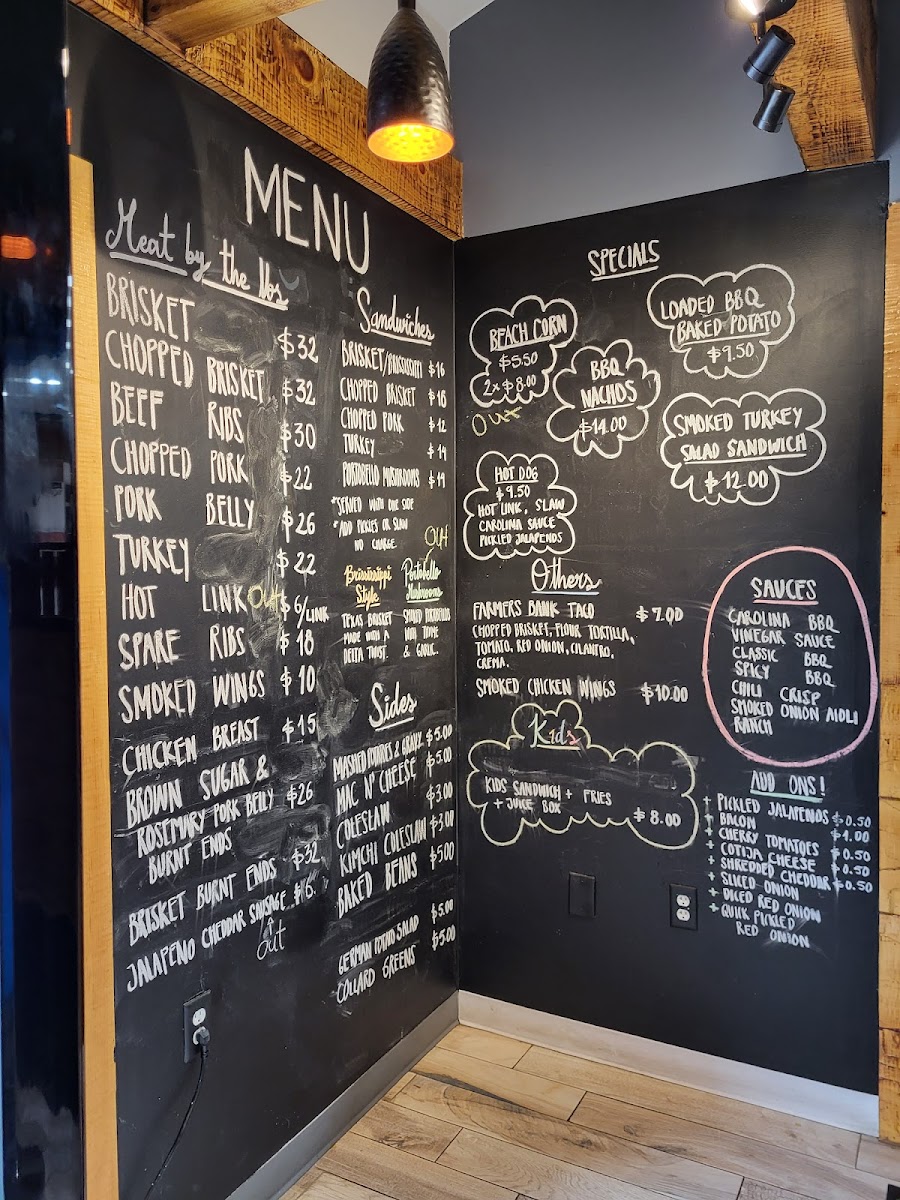 MENU
Meat by the lbs
BRISKET $32
CHOPPED BRISKET $32
BEEF RIBS $30
CHOPPED PORK $22
PORK BELLY $26
TURKEY $22
HOT LINK OUT $6/LINK
SPARE RIBS $18
SMOKED WINGS $10
CHICKEN BREAST $15
BROWN SUGAR &
ROSEMARY PORK BELLY $26
BURNT ENDS
BRISKET BURNT ENDS $32
JALAPENO CHEDDAR SAUSAGE $16
out
Sandwiches
BRISKET/BRISSISSIPPI $16
CHOPPED BRISKET $16
CHOPPED PORK $12
TURKEY $14
PORTOBELLO MUSHROOMS $14
*SERVED WITH ONE SIDE
*ADD PICKLES OR SLAW
NO CHARGE
OUT
Brississippi
Style
TEXAS BRISKET
MADE WITH A
DELTA TWIST.
Portobello
Mushrooms
WITH THYME
& GARLIC.
Sides
MASHED POTATOES & GRAVY $5.00
MAC N' CHEESE $5.00
COLESLAW $3.00
KIMCHI COLESLAW $3.00
BAKED BEANS $5.00
GERMAN POTATO SALAD $5.00
COLLARD GREENS $5.00
SPECIALS
BEACH CORN
$5.50
2x $8.00
OUT
LOADED BBQ
BAKED POTATO
$9.50
BBQ
NACHOS
$14.00
SMOKED TURKEY
SALAD SANDWICH
$12.00
HOT DOG
$9.50
HOT LINK, SLAW
CAROLINA SAUCE
PICKLED JALAPENOS
Others
FARMERS BANK TACO $7.00
CHOPPED BRISKET, FLOUR TORTILLA,
TOMATO, RED ONION, CILANTRO,
CREMA.
SMOKED CHICKEN WINGS $10.00
Kids
KIDS SANDWICH + FRIES
+ JUICE BOX $8.00
SAUCES
CAROLINA BBQ
VINEGAR SAUCE
CLASSIC BBQ
SPICY BBQ
CHILI CRISP
SMOKED ONION AIOLI
RANCH
ADD ONS!
+ PICKLED JALAPENOS $0.50
+ BACON $1.00
+ CHERRY TOMATOES $0.50
+ COTIJA CHEESE $0.50
+ SHREDDED CHEDDAR $0.50
+ SLICED ONION
+ DICED RED ONION
+ QUICK PICKLED
RED ONION